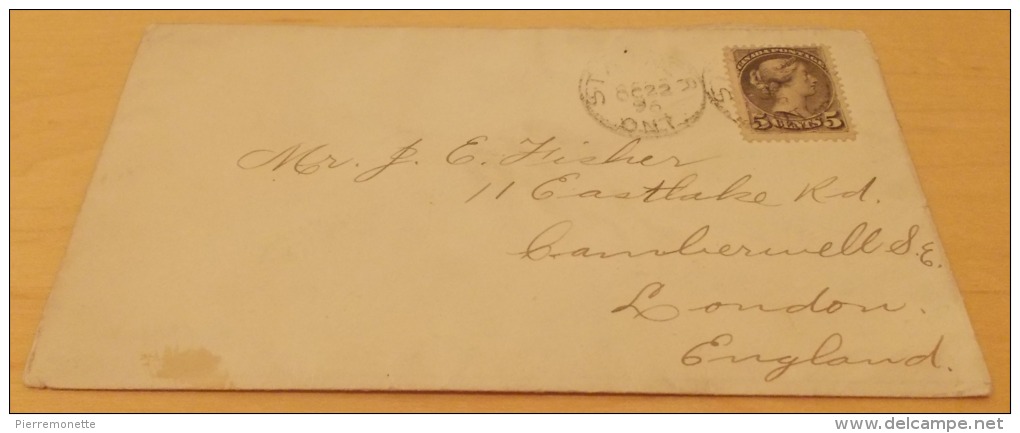 CANADA POSTAGE
5 CENTS 5
OC 22
96
ONT.
Mr. J. E. Fisher
11 Eastlake Rd.
Camberwell S.E.
London.
England.
Pierremonette
delcampe.net